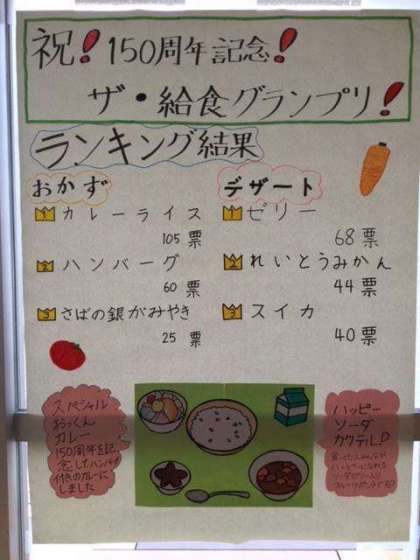 祝！150周年記念！
ザ・給食グランプリ！
ランキング結果
おかず
1 カレーライス
105票
2 ハンバーグ
60票
3 さばの銀がみやき
25票
デザート
1 ゼリー
68票
2 れいとうみかん
44票
3 スイカ
40票
スペシャル
おっくん
カレー
150周年を記
念してハンバーグ
付きのカレーに
しました
ハッピー
ソーダ
カクテル